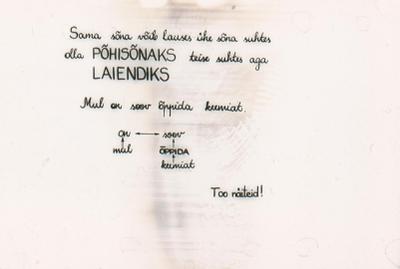 Sama sõna võib lauses ühe sõna suhtes
olla PÕHISÕNAKS teise suhtes aga
LAIENDIKS
Mul on soov õppida keemiat.
on ↔ soov
mul ÕPPIDA
keemiat
Too näiteid!